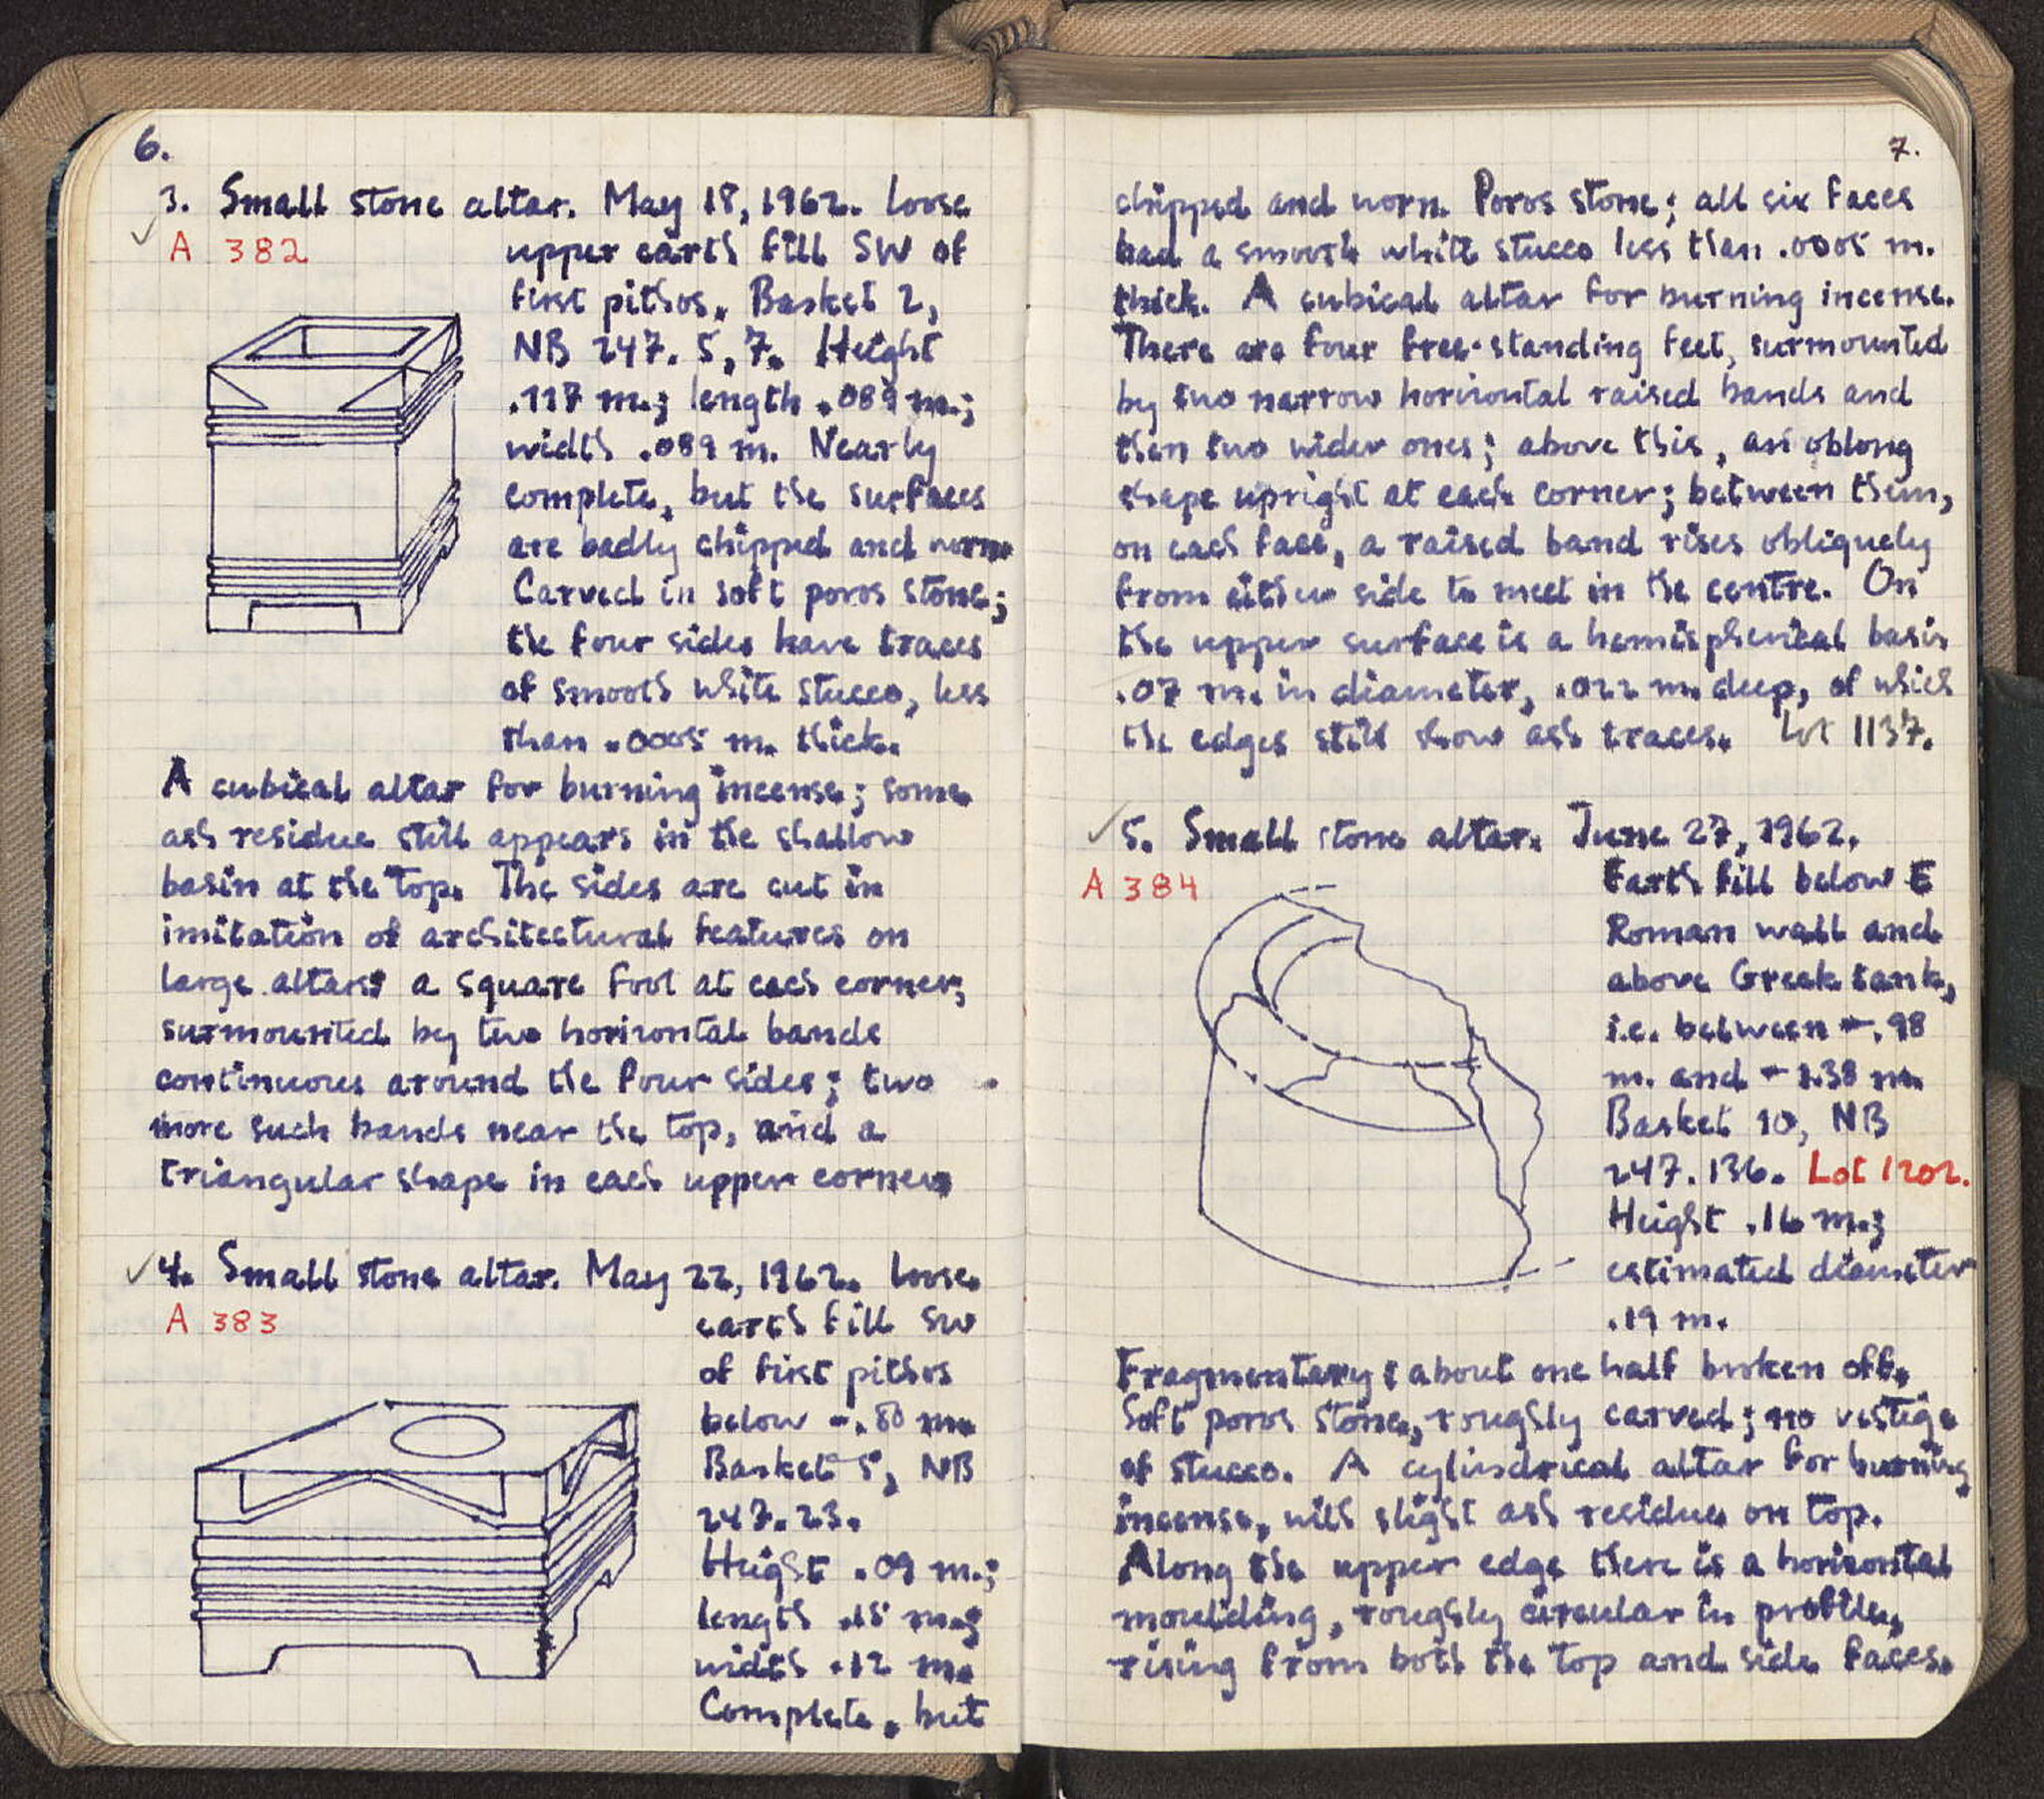 6.
3. Small stone altar. May 18, 1962. Loose
A 382
upper earth fill SW of
first pithos. Basket 2,
NB 247. 5, 7. Height
.117 m.; length .089 m.;
width .089 m. Nearly
complete, but the surfaces
are badly chipped and worn.
Carved in soft poros stone;
the four sides have traces
of smooth white stucco, less
than .0005 m. thick.
A cubical altar for burning incense; some
ash residue still appears in the shallow
basin at the top. The sides are cut in
imitation of architectural features on
large altars: a square foot at each corner,
surmounted by two horizontal bands
continuous around the four sides; two
more such bands near the top, and a
triangular shape in each upper corner.
4. Small stone altar. May 22, 1962. Loose
A 383
earth fill SW
of first pithos
below -.80 m.
Basket 5, NB
247.23.
Height .09 m.;
length .15 m.;
width .12 m.
Complete, but
7.
chipped and worn. Poros stone; all six faces
had a smooth white stucco less than .0005 m.
thick. A cubical altar for burning incense.
There are four free-standing feet, surmounted
by two narrow horizontal raised bands and
then two wider ones; above this, an oblong
shape upright at each corner; between them,
on each face, a raised band rises obliquely
from either side to meet in the centre. On
the upper surface is a hemispherical basin
.07 m. in diameter, .022 m. deep, of which
the edges still show ash traces. Lot 1137.
5. Small stone altar. June 27, 1962.
A 384
Earth fill below E
Roman wall and
above Greek tank,
i.e. between -.98
m. and -1.38 m.
Basket 10, NB
247.136. Lot 1202.
Height .16 m.;
estimated diameter
.19 m.
Fragmentary: about one half broken off.
Soft poros stone, roughly carved; no vestige
of stucco. A cylindrical altar for burning
incense, with slight ash residue on top.
Along the upper edge there is a horizontal
moulding, roughly circular in profile,
rising from both the top and side faces.